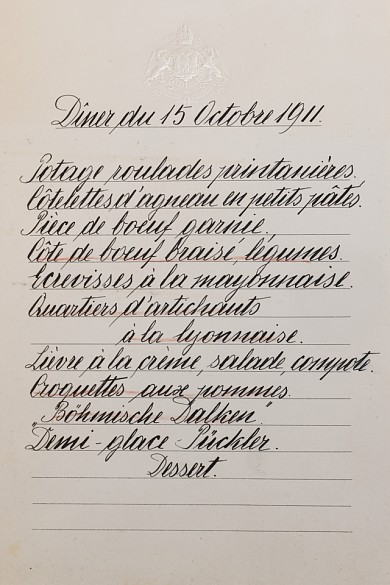 Dîner du 15 Octobre 1911.
Potage roulades printanières.
Côtelettes d'agneau en petits pâtés.
Pièce de boeuf garnie.
Côte de boeuf braisé, légumes.
Ecrevisses à la mayonnaise.
Quartiers d'artichants
à la lyonnaise.
Lièvre à la crème, salade, compote.
Croquettes aux pommes.
„Böhmische Dalken“.
Demi-glace Pückler.
Dessert.